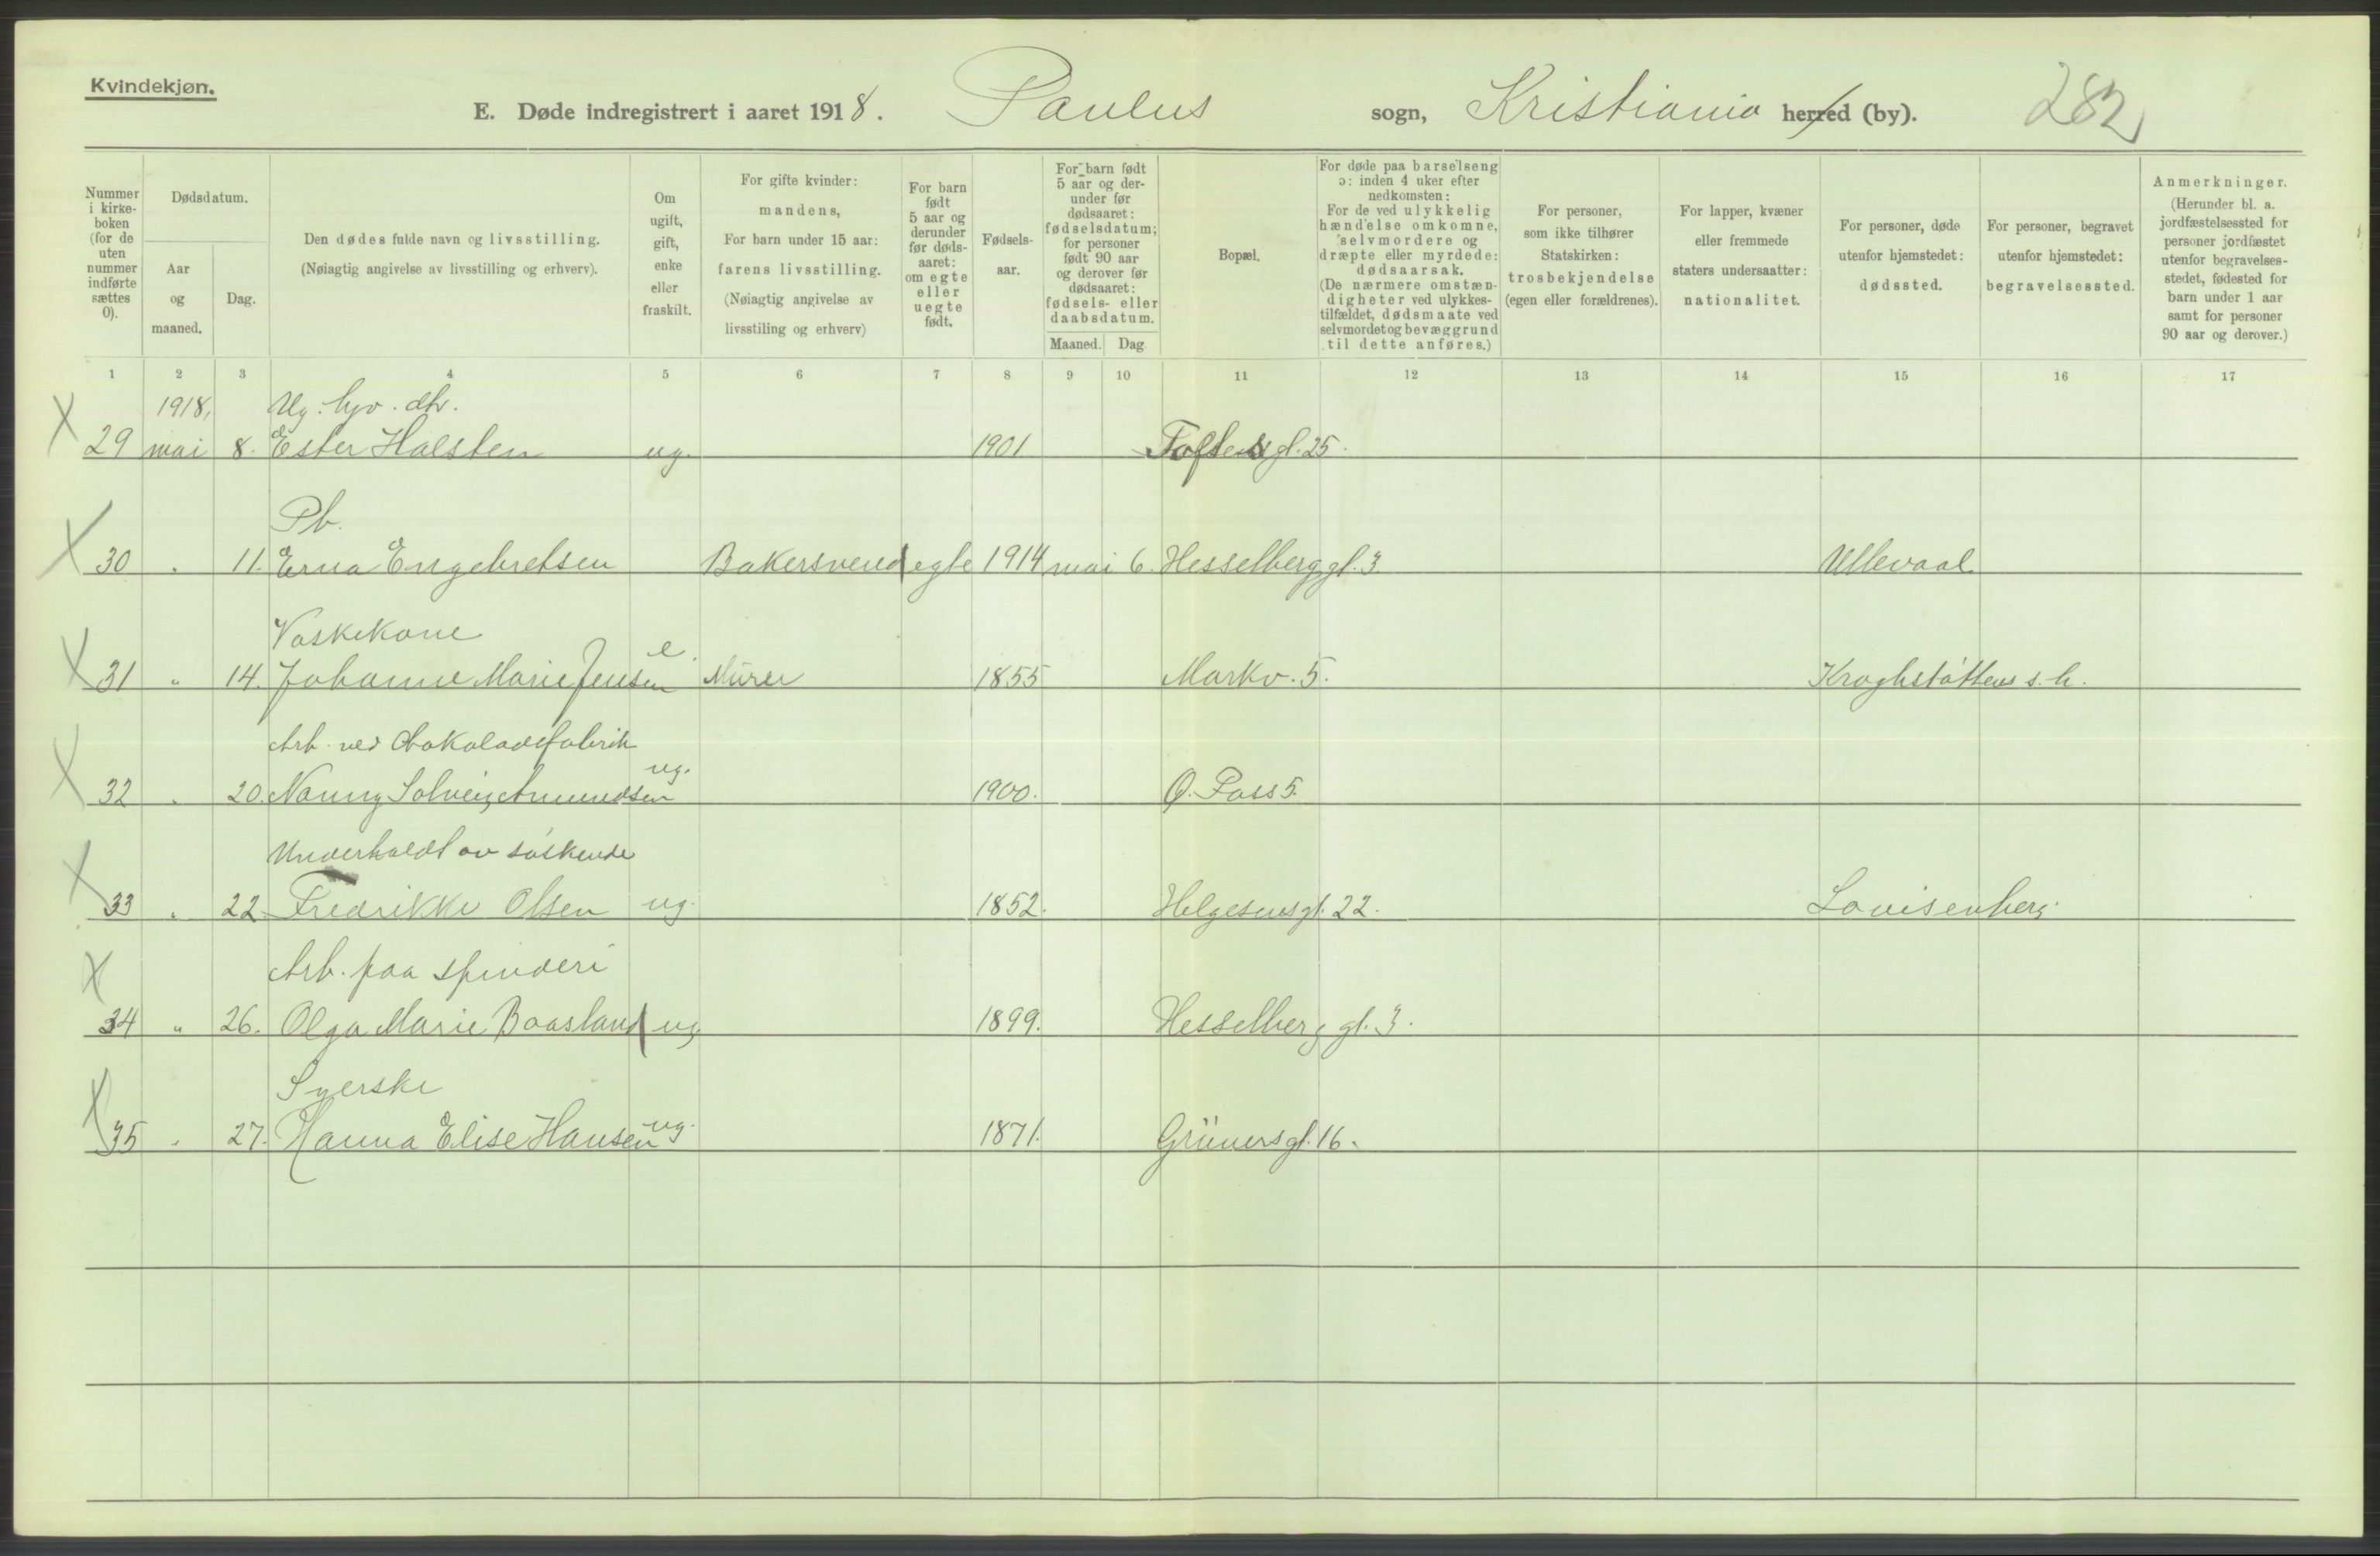 Kvindekjøn.
E. Døde indregistrert i aaret 1918. Paulus sogn, Kristiania herred (by). 282
Nummer i kirke-boken (for de uten nummer indførte sættes 0).
Dødsdatum.
Aar og maaned.
Dag.
Den dødes fulde navn og livsstilling.
(Nøiagtig angivelse av livsstilling og erhverv).
Om ugift, gift, enke eller fraskilt.
For gifte kvinder: mandens,
For barn under 15 aar: farens livsstilling.
(Nøiagtig angivelse av livsstiling og erhverv)
For barn født 5 aar og derunder før døds-aaret: om egte eller uegte født.
Fødsels-aar.
For barn født 5 aar og der-under før dødsaaret: fødselsdatum; for personer født 90 aar og derover før dødsaaret: fødsels- eller daabsdatum.
Maaned. Dag
Bopæl.
For døde paa barselseng ɔ: inden 4 uker efter nedkomsten:
For de ved ulykkelig hændelse omkomne, selvmordere og dræpte eller myrdede: dødsaarsak.
(De nærmere omstæn-digheter ved ulykkes-tilfældet, dødsmaate ved selvmordet og bevæggrund til dette anføres.)
For personer, som ikke tilhører Statskirken: trosbekjendelse (egen eller forældrenes).
For lapper, kvæner eller fremmede staters undersaatter: nationalitet.
For personer, døde utenfor hjemstedet: dødssted.
For personer, begravet utenfor hjemstedet: begravelsessted.
Anmerkninger.
(Herunder bl. a. jordfæstelsessted for personer jordfæstet utenfor begravelses-stedet, fødested for barn under 1 aar samt for personer 90 aar og derover.)
1 2 3 4 5 6 7 8 9 10 11 12 13 14 15 16 17
1918, Ug. hjv. dtr.
X 29 mai 8. Ester Halsten ug. 1901 Toftesgt. 25.
Pb.
X 30 " 11. Erna Engebretsen Bakersvend egte 1914 mai 6. Hesselberggt. 3. Ullevaal
Vaskekone
X 31 " 14. Johanne Marie Jensen e. Murer 1855 Markv. 5. Kroghstøttens s.h.
Arb. ved Chokoladefabrik
X 32 " 20. Nanny Solveig Amundsen ug. 1900. Ø. Foss 5.
Underholdt av søskende
X 33 " 22 Fredrikke Olsen ug. 1852. Helgesensgt. 22. Lovisenberg.
Arb. paa spinderi
X 34 " 26. Olga Marie Baasland ug 1899. Hesselberg gt. 3.
Syerske
X 35 " 27. Hanna Elise Hansen ug. 1871. Grünersgt. 16.